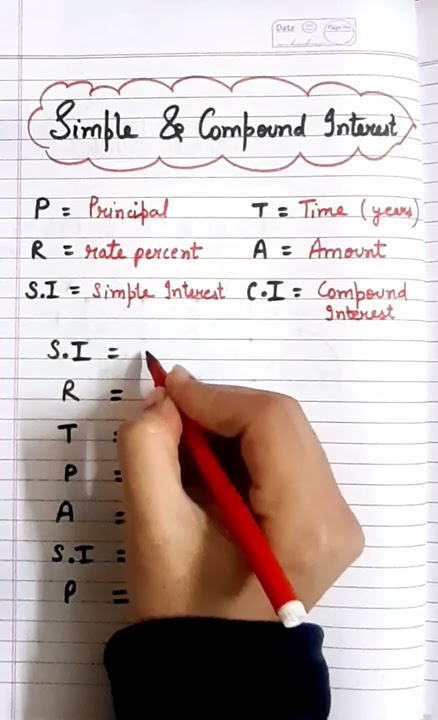 Date
Page No.
Simple & Compound Interest
P = Principal T = Time (years)
R = rate percent A = Amount
S.I = Simple Interest C.I = Compound Interest
S.I =
R =
T :
P =
A =
S.I =
P =